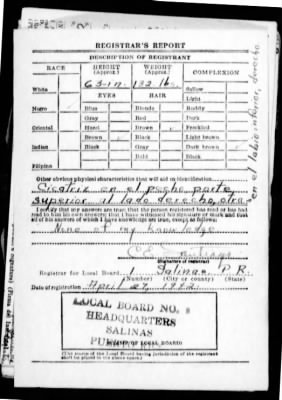 REGISTRAR'S REPORT
DESCRIPTION OF REGISTRANT
RACE
HEIGHT
(Approx.)
WEIGHT
(Approx.)
COMPLEXION
White
63 in.
132 lb.
Sallow
EYES
HAIR
Light
Negro
Blue
Blonde
Ruddy
Gray
Red
Dark
Oriental
Hazel
Brown
Freckled
Brown
Black
Light brown
Indian
Black
Gray
Dark brown
Bald
Black
Filipino
Other obvious physical characteristics that will aid in identification
Cicatriz en el pecho parte
superior al lado derecho, otra
en el labio inferior, derecho
I certify that my answers are true; that the person registered has read or has had
read to him his own answers; that I have witnessed his signature or mark and that
all of his answers of which I have knowledge are true, except as follows:
None of my knowledge
Signature of registrar
Registrar for Local Board
1
Salinas
P.R.
(Number)
(City or county)
(State)
Date of registration
April 27, 1942
LOCAL BOARD NO.
HEADQUARTERS
SALINAS
OF LOCAL BOARD)
(The stamp of the Local Board having jurisdiction of the registrant
shall be placed in the above space.)